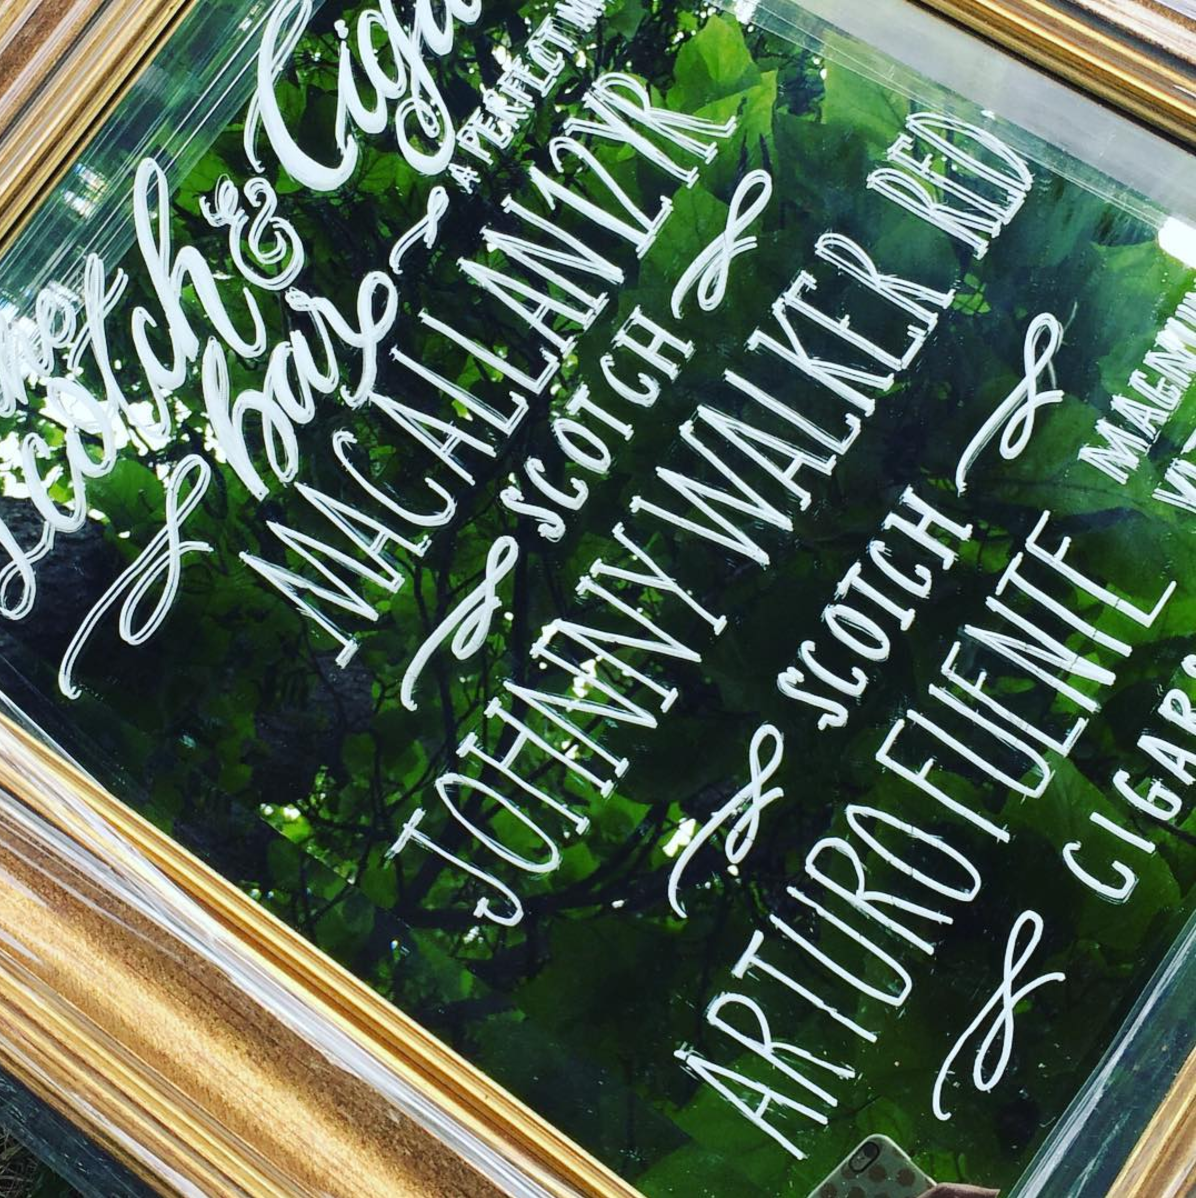 Scotch & Cigar
bar
A PERFECT
MACALLAN 12YR
SCOTCH
JOHNNY WALKER RED
SCOTCH
ARTURO FUENTE
CIGARS